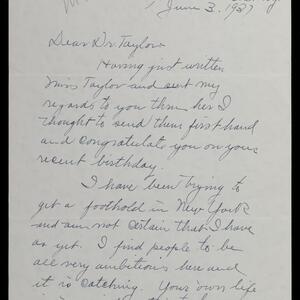 June 3, 1937
Dear Dr Taylor
Having just written
Miss Taylor and sent my
regards to you thru her I
thought to send them first hand
and congratulate you on your
recent birthday.
I have been trying to
get a foothold in New York
and am not certain that I have
as yet. I find people to be
all very ambitious here and
it is catching. Your own life